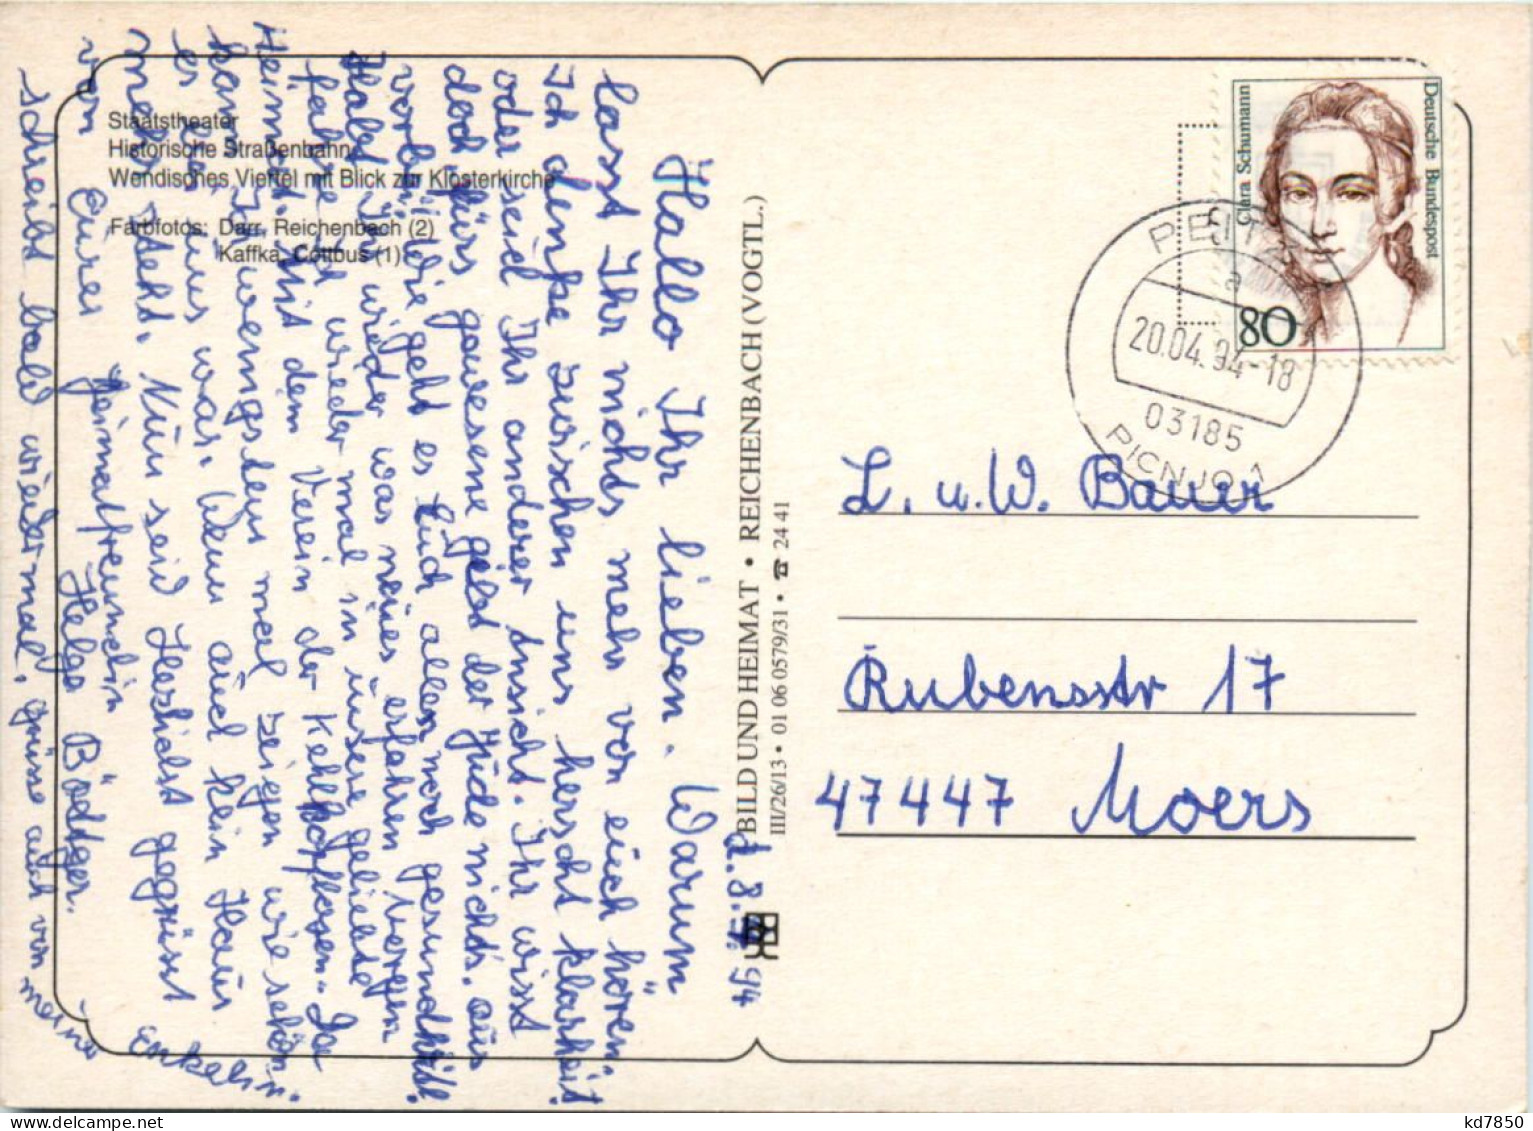 Staatstheater
Historische Straßenbahn
Wendisches Viertel mit Blick zur Klosterkirche
Farbfotos: Darr, Reichenbach (2)
Kaffka, Cottbus (1)
18.4.94
Hallo Ihr lieben. Warum
lasst Ihr nichts mehr von euch hören
Ich denke zwischen uns herscht klarheit
oder seid Ihr anderer Ansicht. Ihr wisst
doch fürs gewesene gibt der Jude nichts. aus
vorbei. Wie geht es Euch allen noch gesundheitl.
Habt Ihr wieder was neues erfahren wegen
fahre ich wieder mal in unsere geliebte
Heimat. Mit dem Verein der Kehlkopflosen. Da
kann ich wenigstens mal zeigen wie schön
es bei uns war. Wenn auch kein Haus
mehr steht. Nun seid Herzlichst gegrüsst
von Eurer Heimatfreundin
Helga Böttger.
schreibt bald wiedermal, grüsse auch von meiner Enkelin.
BILD UND HEIMAT • REICHENBACH (VOGTL.)
III/26/13 • 01 06 0579/31 • ☎ 24 41
Deutsche Bundespost
Clara Schumann
80
PEITZ
a
20.04.94-18
03185
L. u. W. Bauer
Rubensstr 17
47447 Moers
kd7850